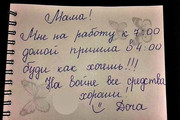 Мама!
Мне на работу к 7:00
домой пришла в 4:00
буди как хочешь!!!
На войне все средства
хороши!!
Доча